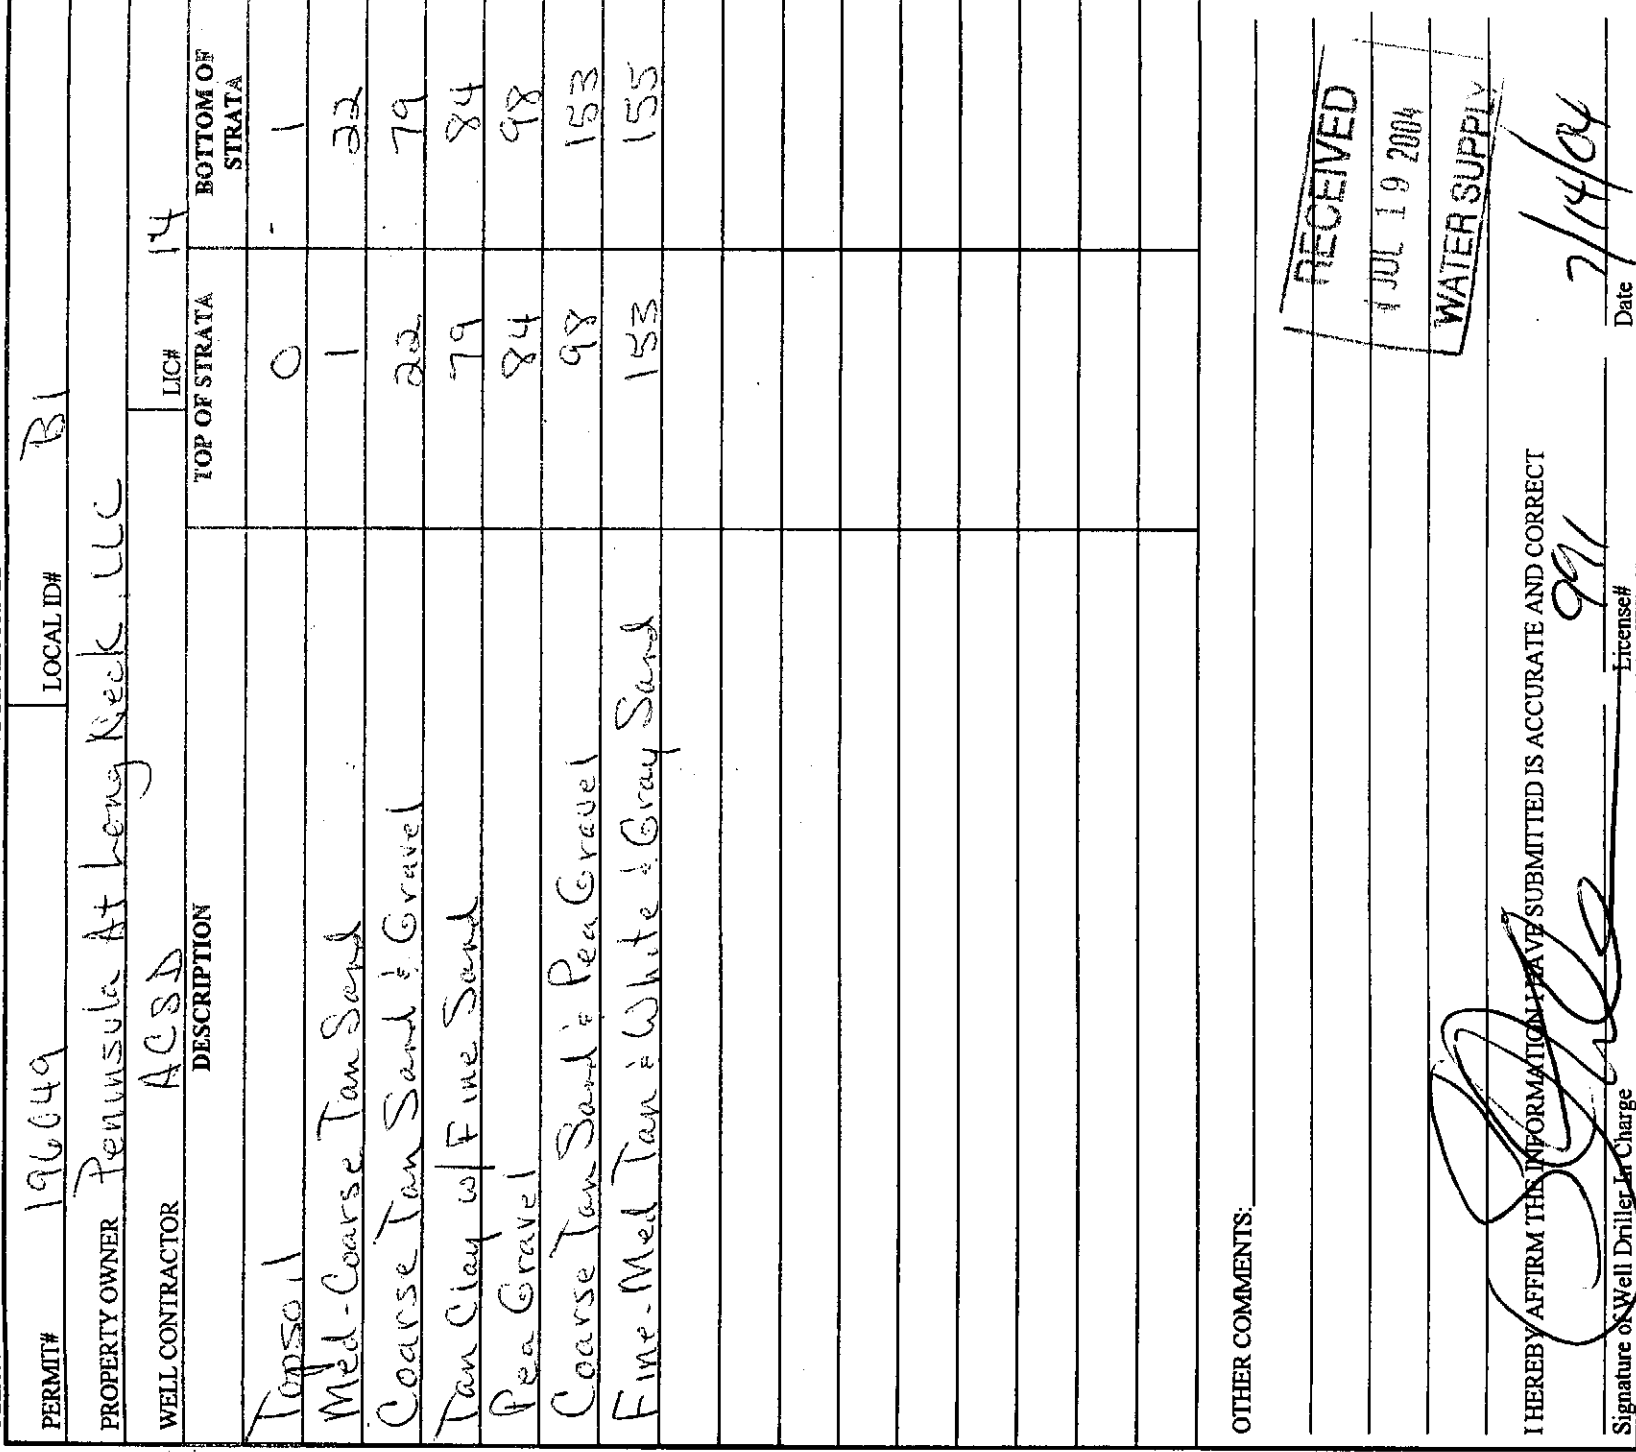 PERMIT# 196049 LOCAL ID# B1
PROPERTY OWNER Peninsula At Long Neck, LLC
WELL CONTRACTOR ACSD LIC# 14
DESCRIPTION TOP OF STRATA BOTTOM OF STRATA
Topsoil 0 1
Med-Coarse Tan Sand 1 22
Coarse Tan Sand & Gravel 22 79
Tan Clay w/ Fine Sand 79 84
Pea Gravel 84 98
Coarse Tan Sand & Pea Gravel 98 153
Fine-Med Tan & White & Gray Sand 153 155
OTHER COMMENTS:
RECEIVED
JUL 19 2004
WATER SUPPLY
I HEREBY AFFIRM THE INFORMATION I HAVE SUBMITTED IS ACCURATE AND CORRECT
991 7/14/04
Signature of Well Driller In Charge License# Date